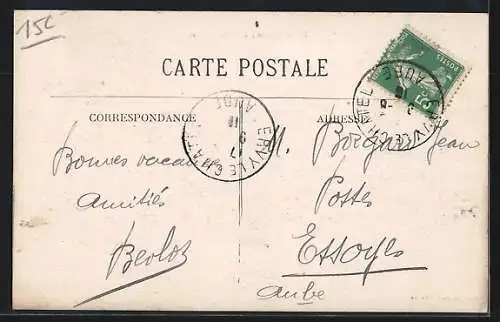 15c
CARTE POSTALE
CORRESPONDANCE
ADRESSE
POSTES
ERVY LE CHATEL
AUBE
ERVY LE CHATEL
AUBE
Bonnes vacances
Amitiés
M. Jean
Postes
Essoyes
Aube